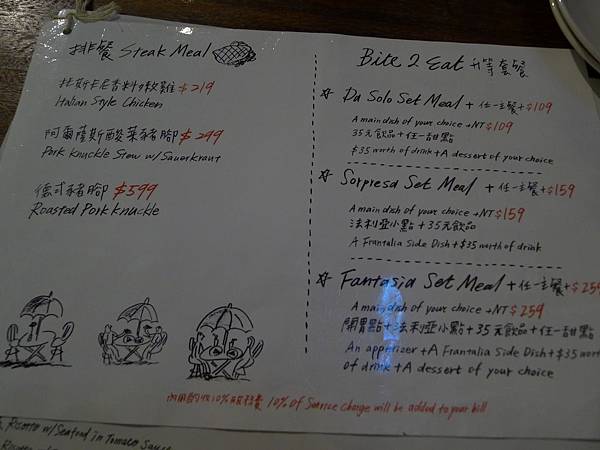 排餐 Steak Meal
托斯卡尼香料嫩雞 $219
Italian Style Chicken
阿爾薩斯酸菜豬腳 $299
Pork Knuckle Stew w/Sauerkraut
德式豬腳 $599
Roasted Pork Knuckle
Bite 2 Eat 升等套餐
☆ Da Solo Set Meal + 任一主餐+$109
A main dish of your choice +NT$109
35元飲品+任一甜點
$35 worth of drink + A dessert of your choice
☆ Sorpresa Set Meal + 任一主餐+$159
A main dish of your choice +NT$159
法利亞小點+35元飲品
A Frantalia Side Dish+$35 worth of drink
☆ Fantasia Set Meal + 任一主餐+$259
A main dish of your choice +NT$259
開胃點+法利亞小點+35元飲品+任一甜點
An appetizer +A Frantalia Side Dish+$35 worth
of drink +A dessert of your choice
內用酌收10%服務費 10% of Service charge will be added to your bill
Ricotto w/Seafood in Tomato Sauce